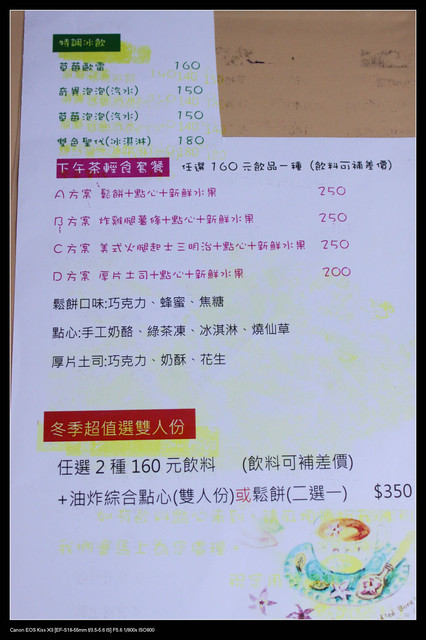 特調冰飲
草莓歐蕾 160
奇異泡泡(汽水) 150
草莓泡泡(汽水) 150
雙色聖代(冰淇淋) 180
下午茶輕食套餐 任選160元飲品一種 (飲料可補差價)
A方案 鬆餅+點心+新鮮水果 250
B方案 炸雞腿薯條+點心+新鮮水果 250
C方案 美式火腿起士三明治+點心+新鮮水果 250
D方案 厚片土司+點心+新鮮水果 200
鬆餅口味:巧克力、蜂蜜、焦糖
點心:手工奶酪、綠茶凍、冰淇淋、燒仙草
厚片土司:巧克力、奶酥、花生
冬季超值選雙人份
任選2種160元飲料 (飲料可補差價)
+油炸綜合點心(雙人份)或鬆餅(二選一) $350
Canon EOS Kiss X3 [EF-S18-55mm f/3.5-5.6 IS] F5.6 1/800s ISO800